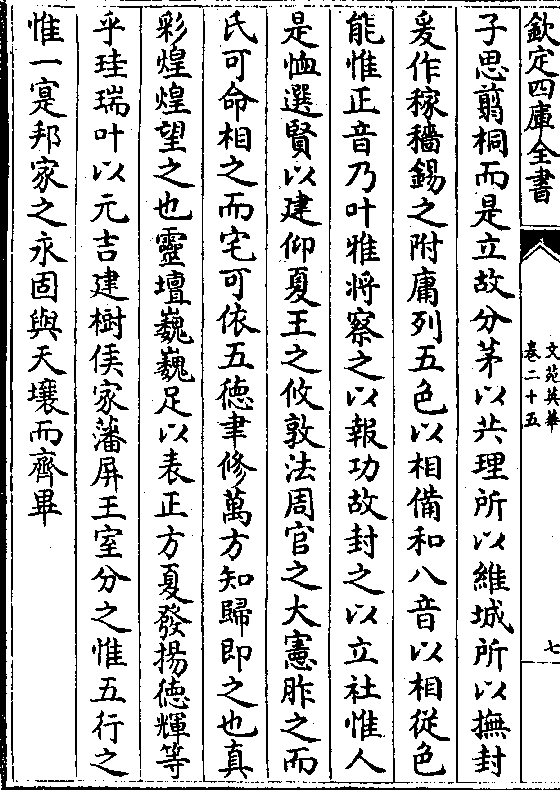 欽定四庫全書
文苑英華
卷二十五
七
子思翦桐而是立故分茅以共理所以維城所以撫封
爰作稼穡錫之附庸列五色以相備和八音以相從色
能惟正音乃叶雅將察之以報功故封之以立社惟人
是恤選賢以建仰夏王之攸敦法周官之大憲胙之而
氏可命相之而宅可依五德聿修萬方知歸即之也真
彩煌煌望之也靈壇巍巍足以表正方夏發揚德輝等
乎珪瑞叶以元吉建樹侯家藩屏王室分之惟五行之
惟一寔邦家之永固與天壤而齊畢